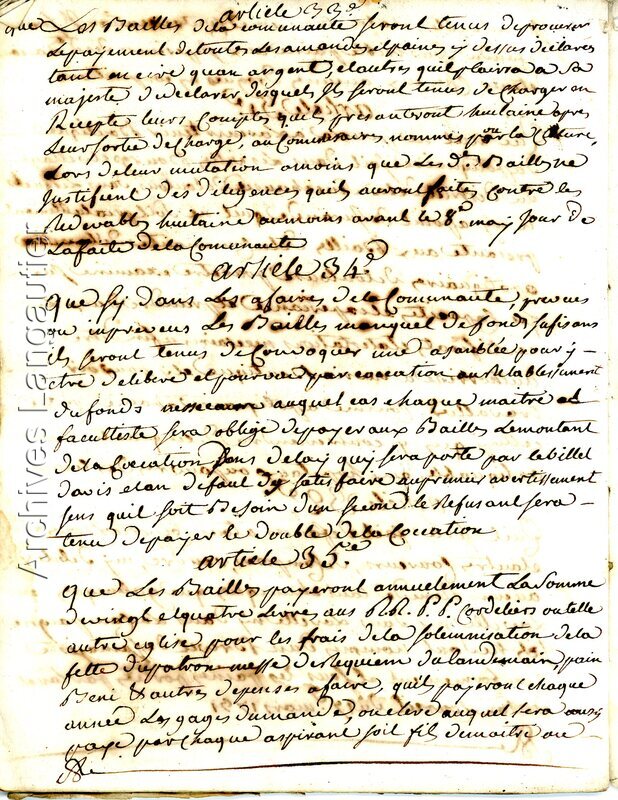 article 33e
que Les Bailles de la communauté seront tenus de procurer
Le payement de toutes Les amandes et paines cy dessus declarés
tant en cire quan argent, et autres quil plaira a Sa
majesté de declarer desquels Ils seront tenus de Charger en
Recepte leurs Comptes quils presanteront huitaine apres
Leur sortie de Charge, au Commisaires nommés pour la Cloture,
Lors de leur mutation amoins que Les ds. Bailles ne
Justifient des diligences quils auront faites Contre les
Redevables huitaine aumoins avant le 8e. may Jour de
La faite de la Comunauté
article 34e
que Sy dans Les afaires de la Communauté, prevues
ou impreveus Les Bailles manquet de fonds sufisans
ils seront tenus de Convoquer une asamblée pour y
etre deliberé et pourveu par coccation au Retablissement
du fonds nessicaire auquel cas chaque maitre et
facultteste sera obligé de payer aux Bailles Lemontant
de la Coccation sens delay quy sera porté par le billet
davis et an defaut dy satisfaire au premier avertissement
sens quil soit Besoin dun second le Refusant sera
tenu de payer le double de la Coccation
article 35e.
que Les Bailles payeront annuelement La Somme
de vingt et quatre Livres aus RR. P.P. Cordeliers ou telle
autre eglise pour les frais de la solemnisation de la
fette du patron messe de requiem du landemain, pain
Beni & autres depenses a faire, quils payeront chaque
année Les gages du mande, ou elevé auquel sera aussy
payé par Chaque aspirant soit fils de maitre ou
Archives Langautier